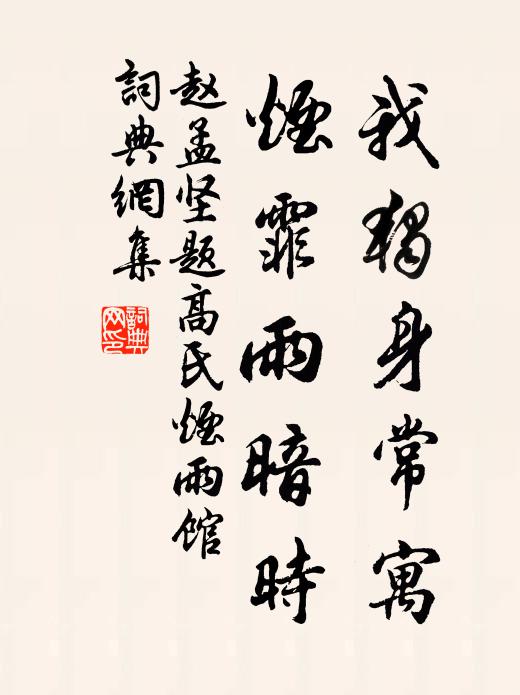 我独身常寓
煙霏雨暗時
赵孟坚题高氏煙雨馆
詞典網集
詞典
网印